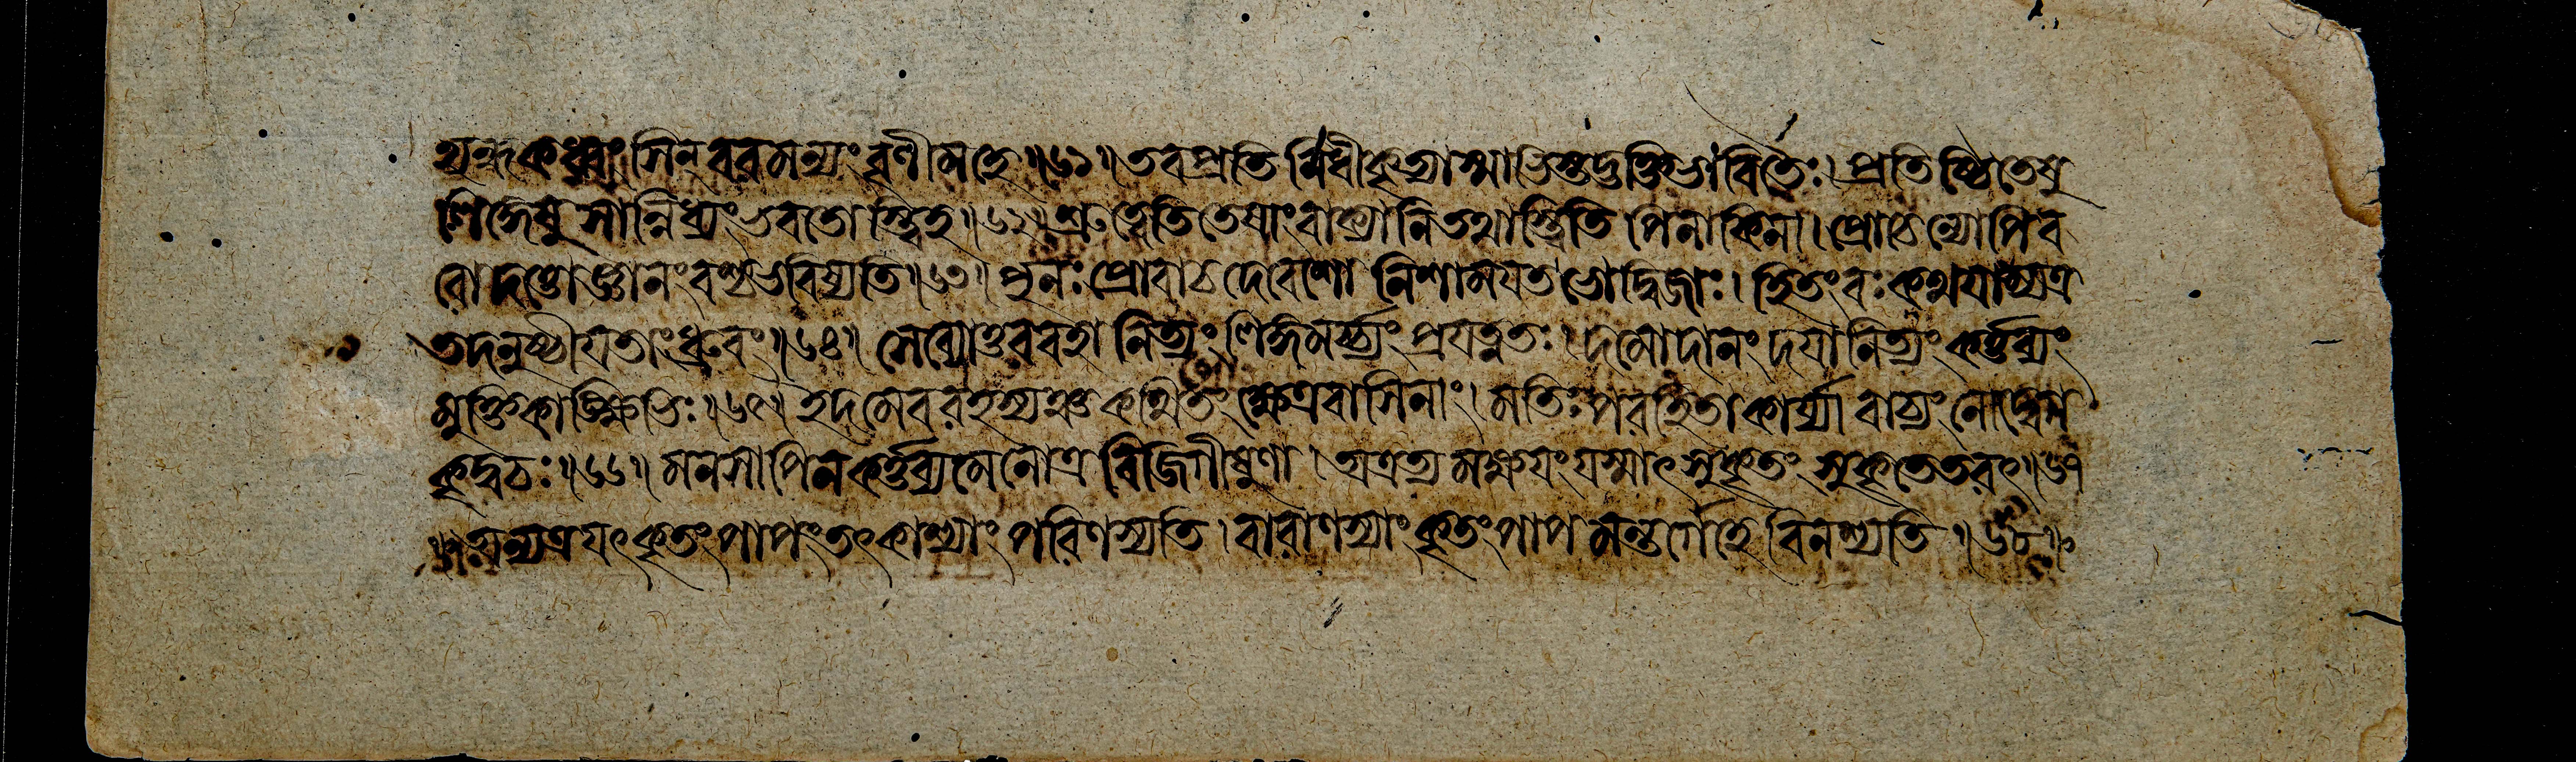 থ্যন্ধকধ্বংসিন্ বরমন্যং বৃণীমহে ॥৬১॥ তব প্রতিনিধীকৃত্যাস্মাভিস্ত্বদ্ভক্তিভাবিতৈঃ। প্রতিষ্ঠিতেষু
লিঙ্গেষু সান্নিধ্যং ভবতোস্ত্বিহ ॥৬২॥ শ্রুত্বেতি তেষাং বাক্যানি তথাস্ত্বিতি পিনাকিনা। প্রোচেন্যোপি ব
রো দত্তো জ্ঞানং বশ্চ ভবিষ্যতি ॥৬৩॥ পুনঃ প্রোবাচ দেবেশো নিশাময়ত ভো দ্বিজাঃ। হিতং বঃ কথয়াম্যত্র
তদনুষ্ঠীয়তাং ধ্রুবং ॥৬৪॥ সেব্যোত্তরবহা নিত্যং লিঙ্গমর্চ্চ্যং প্রযত্নতঃ। দমো দানং দয়া নিত্যং কর্ত্তব্যং
মুক্তিকাঙ্ক্ষিভিঃ ॥৬৫॥ ইদমেব রহস্যঞ্চ কথিতং ক্ষেত্রবাসিনাং। মতিঃ পরহিতা কার্য্যা বাচ্যং নোদ্বেগ
কৃদ্বচঃ ॥৬৬॥ মনসাপি ন কর্ত্তব্যমেনোত্র বিজিগীষুণা। অত্রত্যমক্ষয়ং যস্মাৎ সুকৃতং সুকৃতেতরৎ ॥৬৭
॥ অন্যত্র যৎ কৃতং পাপং তৎ কাশ্যাং পরিণশ্যতি। বারাণস্যাং কৃতং পাপমন্তর্গেহে বিনশ্যতি ॥৬৮॥